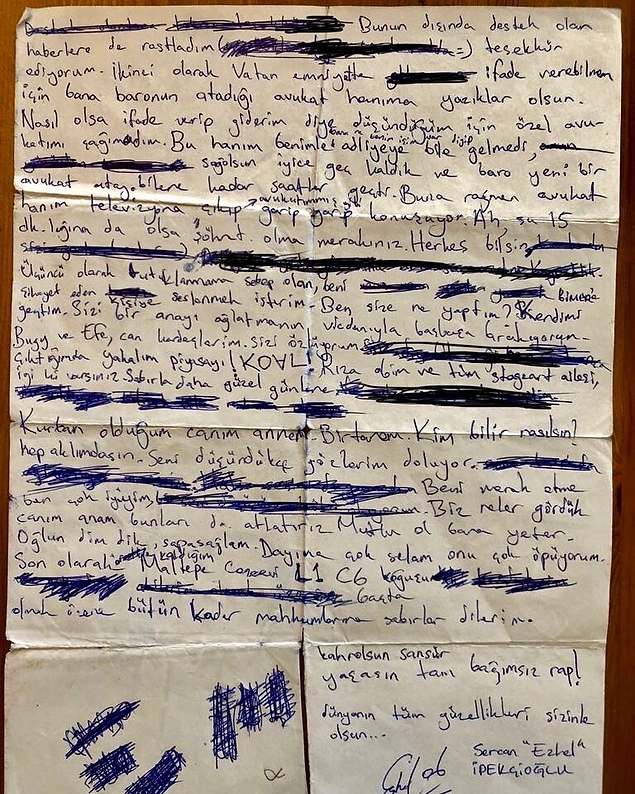 Bunun dışında destek olan
haberlere de rastladım =) teşekkür
ediyorum. İkinci olarak Vatan emniyette ifade verebilmem
için bana baronun atadığı avukat hanıma yazıklar olsun.
Nasıl olsa ifade verip giderim diye düşündüğüm için özel avu-
katımı çağırmadım. Bu hanım benimle adliyeye bile gelmedi,
sağolsun iyice geç kaldık ve baro yeni bir
avukat atayabilene kadar saatler geçti. Buna rağmen avukat
hanım televizyona çıkıp garip garip konuşuyor. Ah, şu 15
dk.lığına da olsa şöhret olma merakınız. Herkes bilsin
Üçüncü olarak tutuklanmama sebep olan, beni
şikayet eden kişiye seslenmek isterim. Ben size ne yaptım? Kendimi
geçtim. Sizi bir anayı ağlatmanın vicdanıyla başbaşa bırakıyorum.
Bugy ve Efe, can kardeşlerim. Sizi özlüyorum
çıktığımda yakalım piyasayı! KOAL Rıza abim ve tüm stageart ailesi,
iyi ki varsınız. Sabırla daha güzel günlere
Kurban olduğum canım annem. Birtanem. Kim bilir nasılsın?
hep aklımdasın. Seni düşündükçe gözlerim doluyor.
Beni merak etme
ben çok iyiyim, Biz neler gördük
canım anam bunları da atlatırız. Mutlu ol bana yeter.
Oğlun dim dik, sapasağlam. Dayıma çok selam onu çok öpüyorum.
Son olarak kaldığım Maltepe Cezaevi L1 C6 koğuşu
başta
olmak üzere bütün kader mahkumlarına sabırlar dilerim.
kahrolsun sansür
yaşasın tam bağımsız rap!
dünyanın tüm güzellikleri sizinle
olsun...
Sercan "Ezhel"
İPEKÇİOĞLU